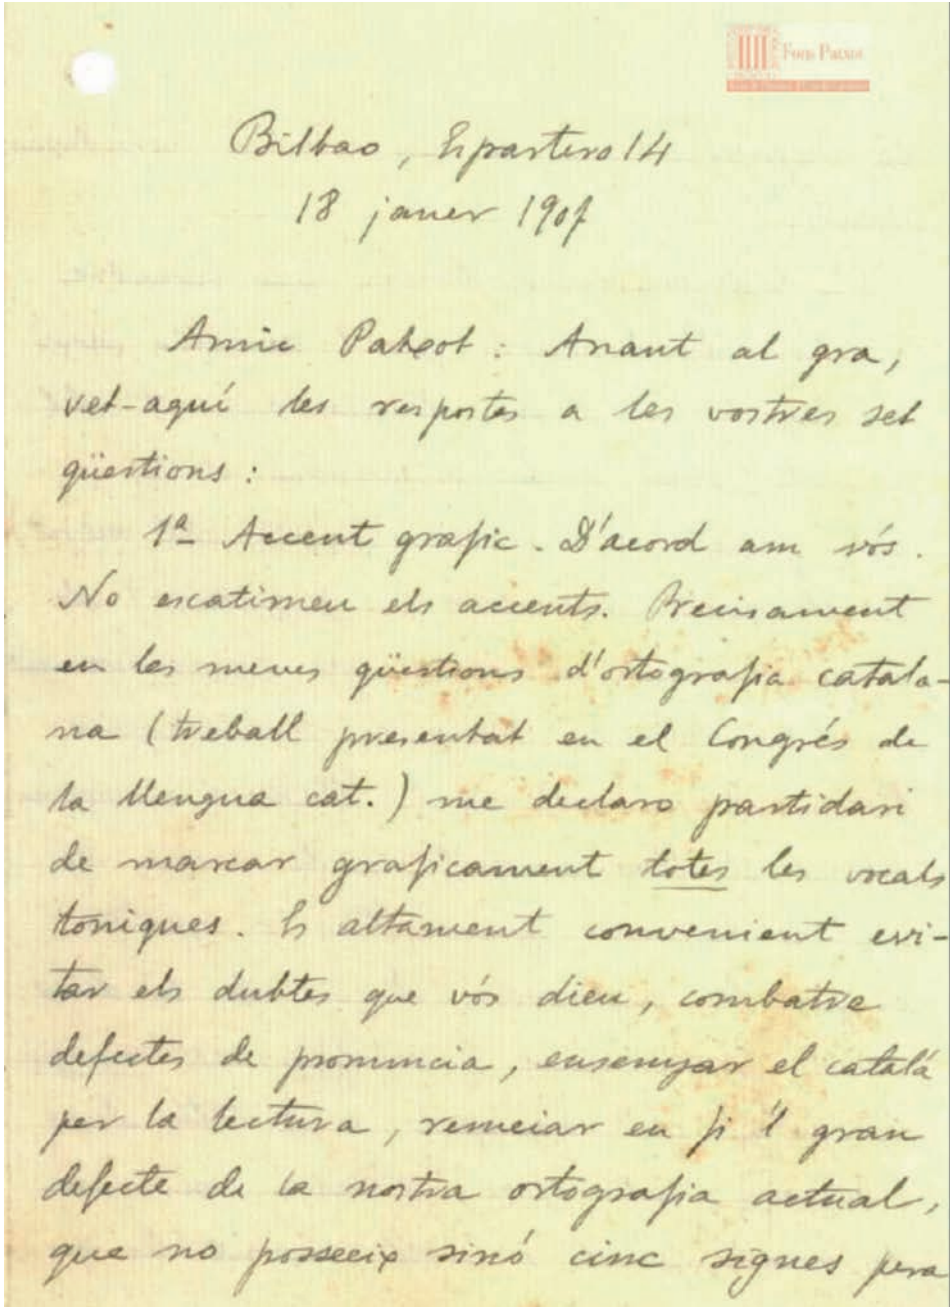 Fons Patxot
Bilbao, Espartero 14
18 janer 1907
Amic Patxot: Anant al gra,
vet-aquí les respostes a les vostres set
qüestions:
1ª Accent grafic. D'acord am vós.
No escatimeu els accents. Precisament
en les meves qüestions d'ortografia catala-
na (treball presentat en el Congrés de
la llengua cat.) me declaro partidari
de marcar graficament totes les vocals
toniques. Es altament convenient evi-
tar els dubtes que vós dieu, combatre
defectes de pronuncia, ensenyar el català
per la lectura, remeiar en fi 'l gran
defecte de la nostra ortografia actual,
que no posseeix sinó cinc signes pera